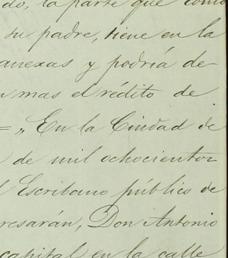 do, la parte que como
su padre, tiene en la
anexas y podria de
mas el rédito de
= „ En la Ciudad de
de mil ochocientos
l Escribano público de
resarán, Don Antonio
capital en la calle